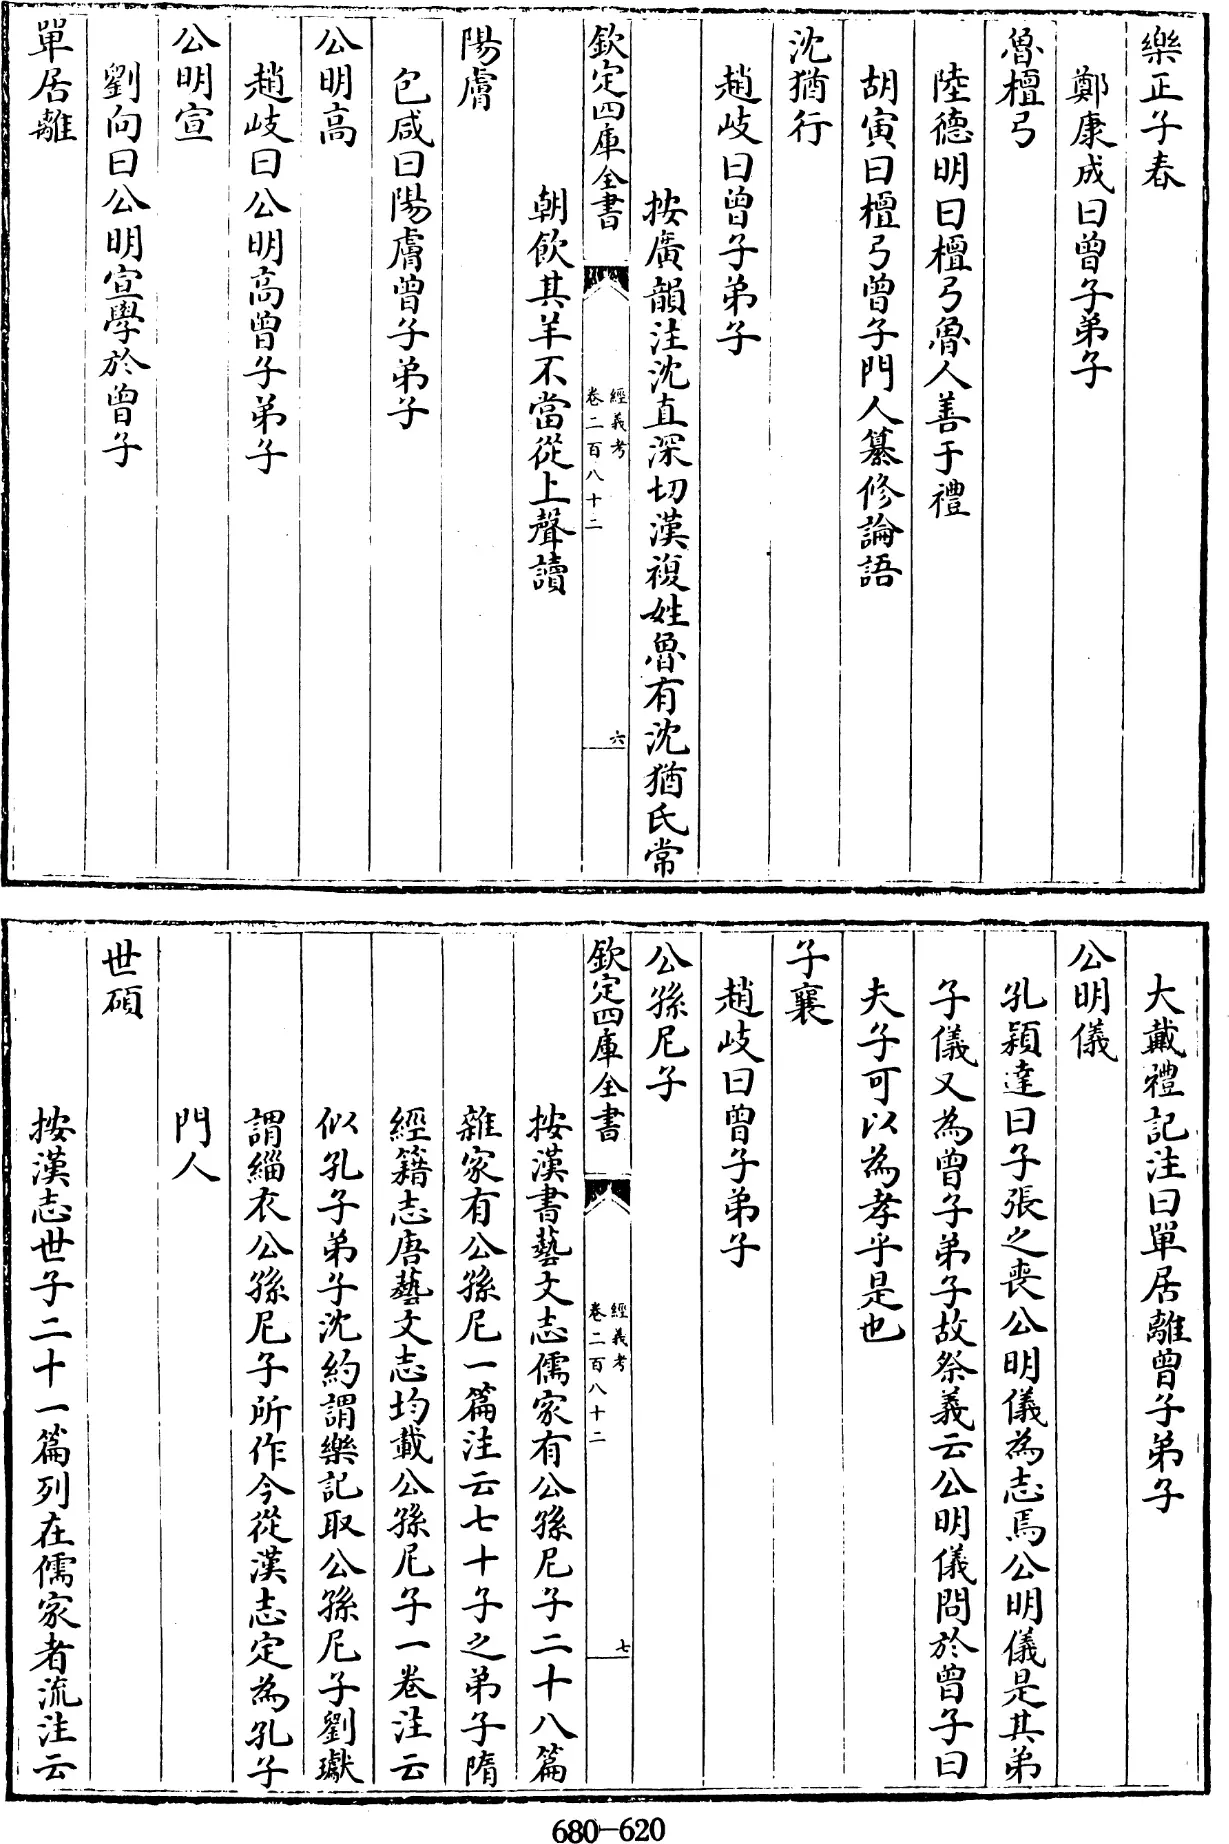 樂正子春
鄭康成曰曾子弟子
魯檀弓
陸德明曰檀弓魯人善于禮
胡寅曰檀弓曾子門人纂修論語
沈猶行
趙岐曰曾子弟子
按廣韻注沈直深切漢複姓魯有沈猶氏常
欽定四庫全書
經義考
卷二百八十二
六
朝飲其羊不當從上聲讀
陽膚
包咸曰陽膚曾子弟子
公明高
趙岐曰公明高曾子弟子
公明宣
劉向曰公明宣學於曾子
單居離
大戴禮記注曰單居離曾子弟子
公明儀
孔穎達曰子張之喪公明儀為志焉公明儀是其弟
子儀又為曾子弟子故祭義云公明儀問於曾子曰
夫子可以為孝乎是也
子襄
趙岐曰曾子弟子
公孫尼子
欽定四庫全書
經義考
卷二百八十二
七
按漢書藝文志儒家有公孫尼子二十八篇
雜家有公孫尼一篇注云七十子之弟子隋
經籍志唐藝文志均載公孫尼子一卷注云
似孔子弟子沈約謂樂記取公孫尼子劉瓛
謂緇衣公孫尼子所作今從漢志定為孔子
門人
世碩
按漢志世子二十一篇列在儒家者流注云
680-620